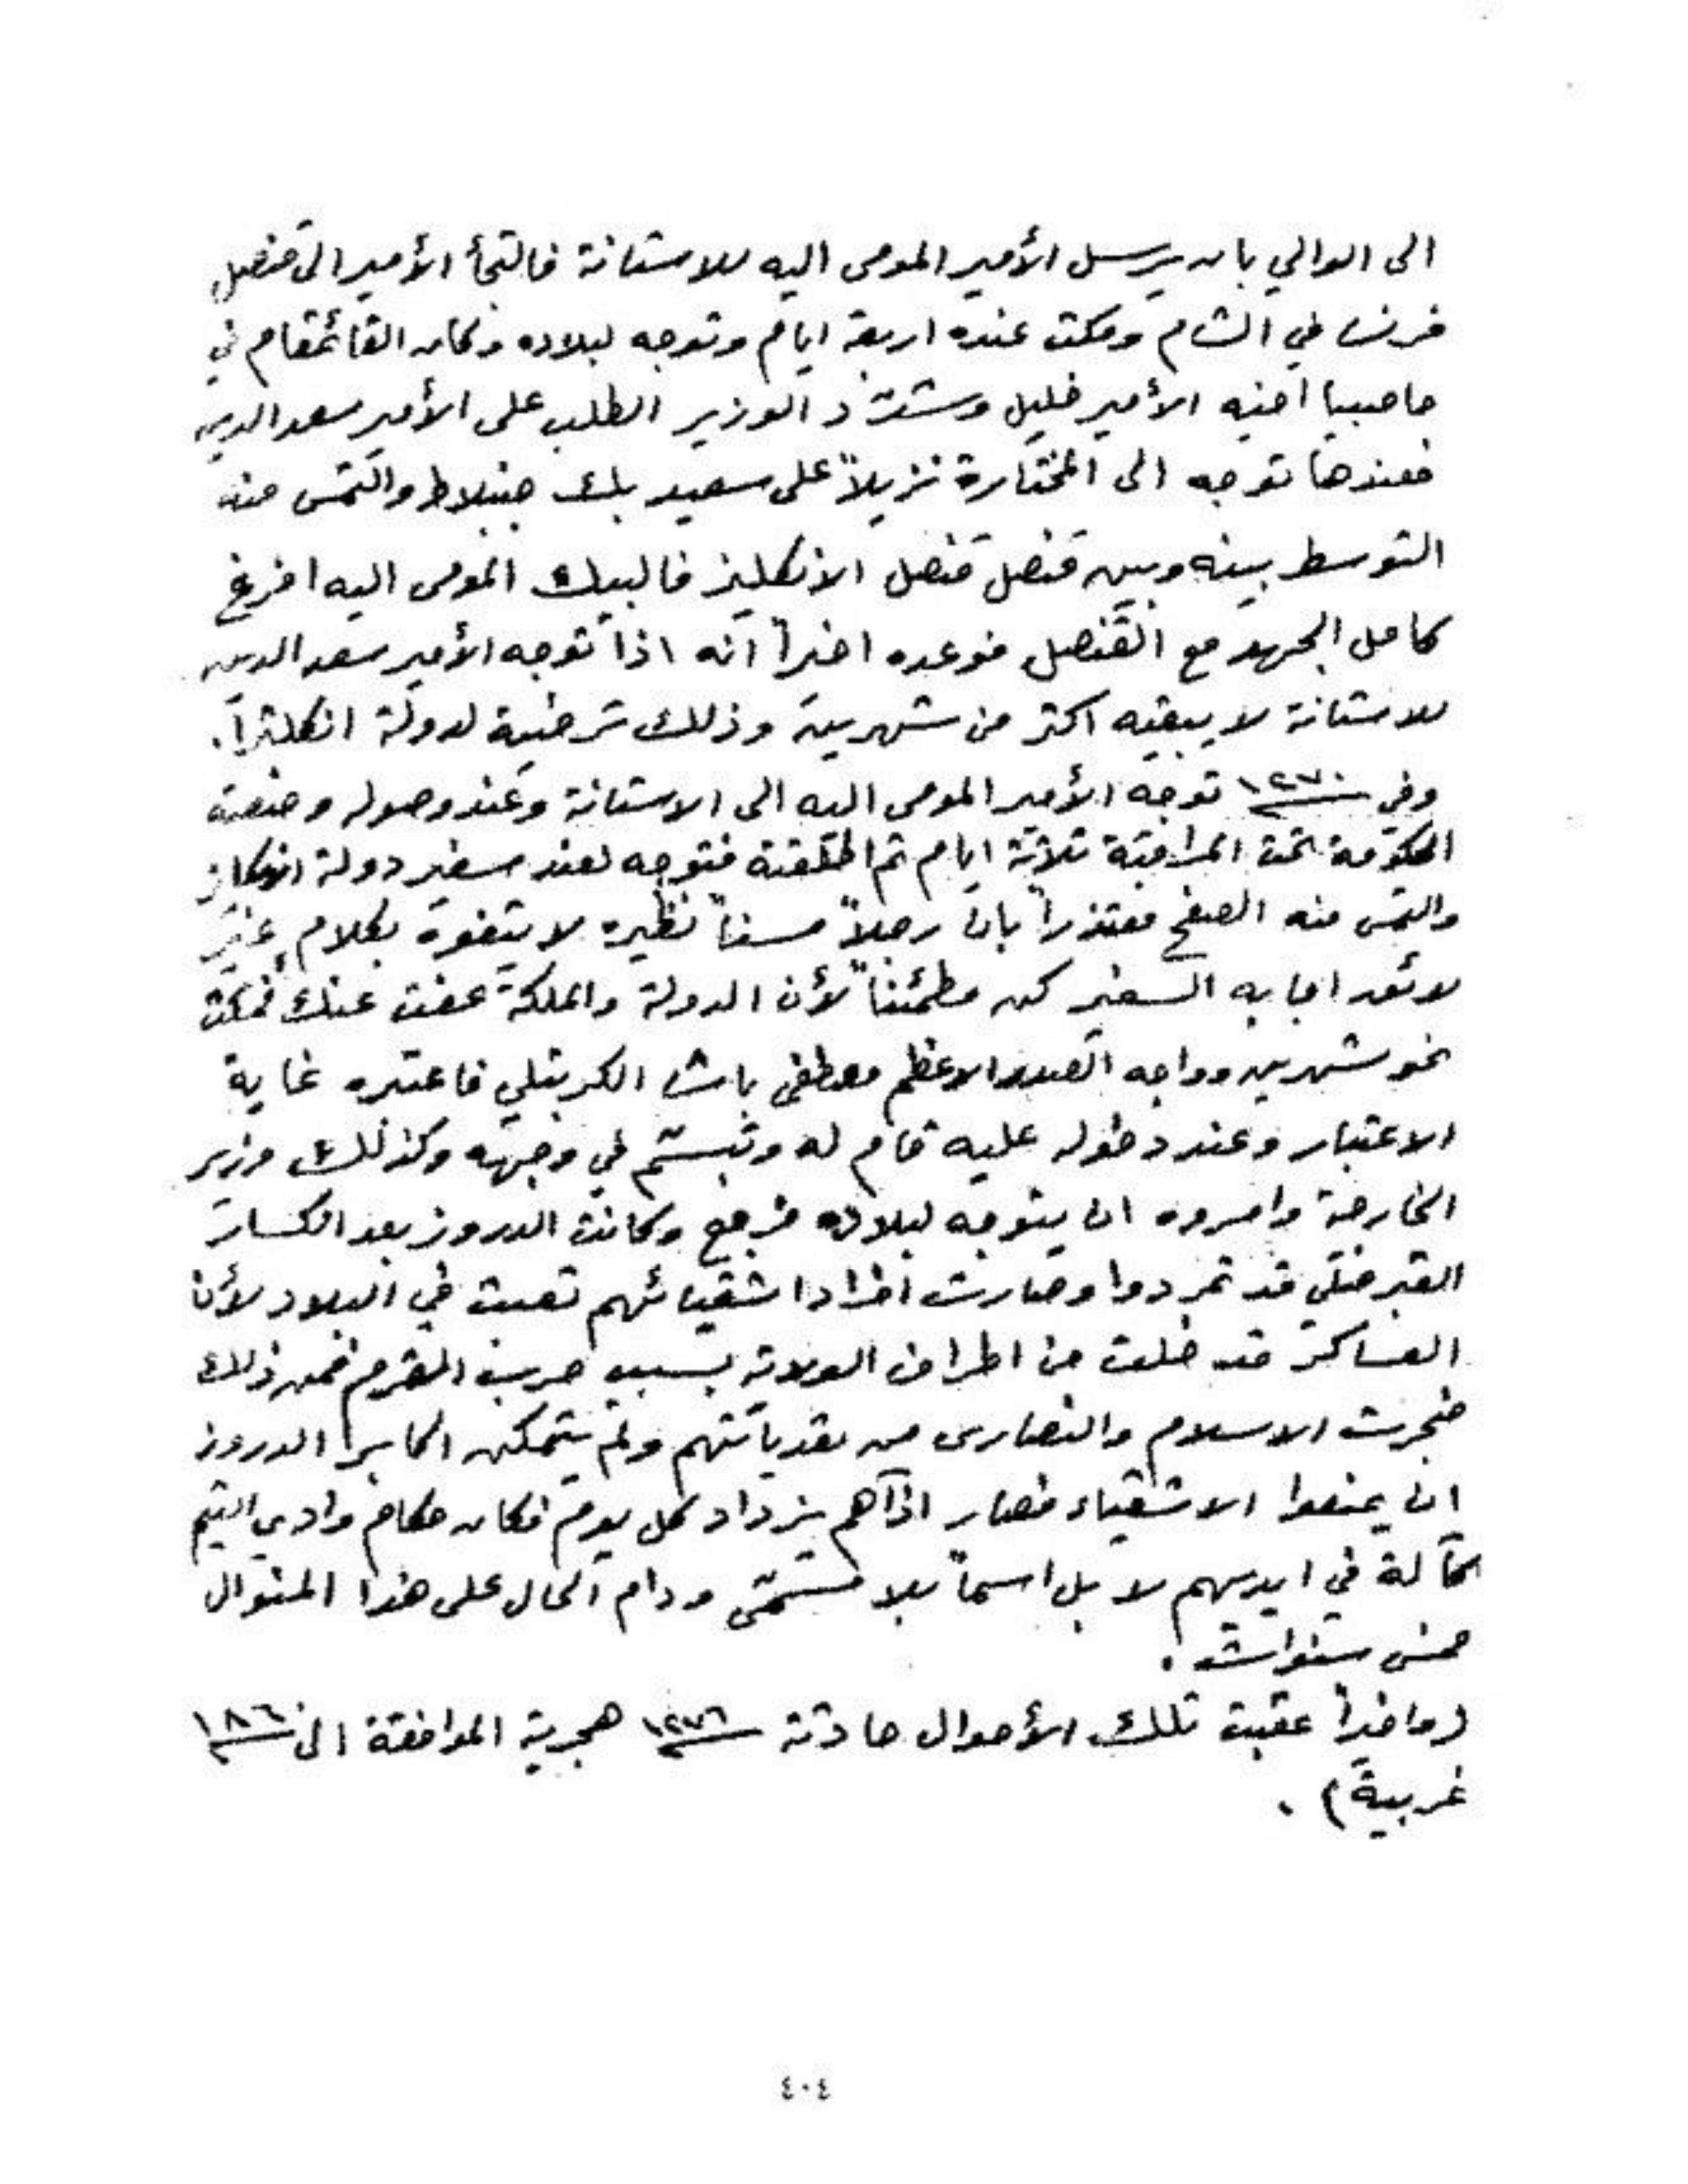 الى الوالي بان يرسل الأمير المومى اليه للاستانة فالتجأ الأمير الى قنصل
فرنسا في الشام ومكث عنده اربعة ايام وتوجه لبلاده وكان القائمقام في
حاصبيا اخيه الأمير خليل وشدّد الوزير الطلب على الأمير سعد الدين
فعندها توجه الى المختارة نزيلاً على سعيد بك جنبلاط والتمس منه
التوسط بينه وبين قنصل قنصل الانكليز فالبيك المومى اليه افرغ
كامل الجهد مع القنصل فوعده اخيراً انه اذا توجه الأمير سعد الدين
للاستانة لا يبقيه اكثر من شهرين وذلك ترضية لدولة انكلترا.
وفي سنة ١٢٧٠ توجه الأمير المومى اليه الى الاستانة وعند وصوله وضعته
الحكومة تحت المراقبة ثلاثة ايام ثم اطلقته فتوجه لعند سفير دولة الانكليز
والتمس منه الصفح معتذراً بان رجلاً مسناً نظيره لا يتفوه بكلام غير
لائق اجابه السفير كن مطمئناً لأن الدولة والملكة عفت عنك فمكث
نحو شهرين وواجه الصدر الاعظم مصطفى باشا الكريتلي فاعتبره غاية
الاعتبار وعند دخوله عليه قام له وتبسّم في وجهه وكذلك وزير
الخارجة وامروه ان يتوجه لبلاده فرجع وكانت الدروز بعد انكسار
القبرصلي قد تمردوا وصارت افراد اشقيائهم تعبث في البلاد لأن
العساكر قد خلت من اطراف الولاية بسبب حرب القرم فمن ذلك
ضجرت الاسلام والنصارى من تعدياتهم ولم يتمكن اكابر الدروز
ان يمنعوا الاشقياء فصار اذآهم يزداد كل يوم فكان حكام وادي التيم
كآلة في ايديهم لا بل اسماً بلا مسمّى ودام الحال على هذا المنوال
خمس سنوات.
(واخيراً عقبت تلك الأحوال حادثة سنة ١٢٧٦ هجرية الموافقة الى سنة ١٨٦٠
غربية).
٤٠٤